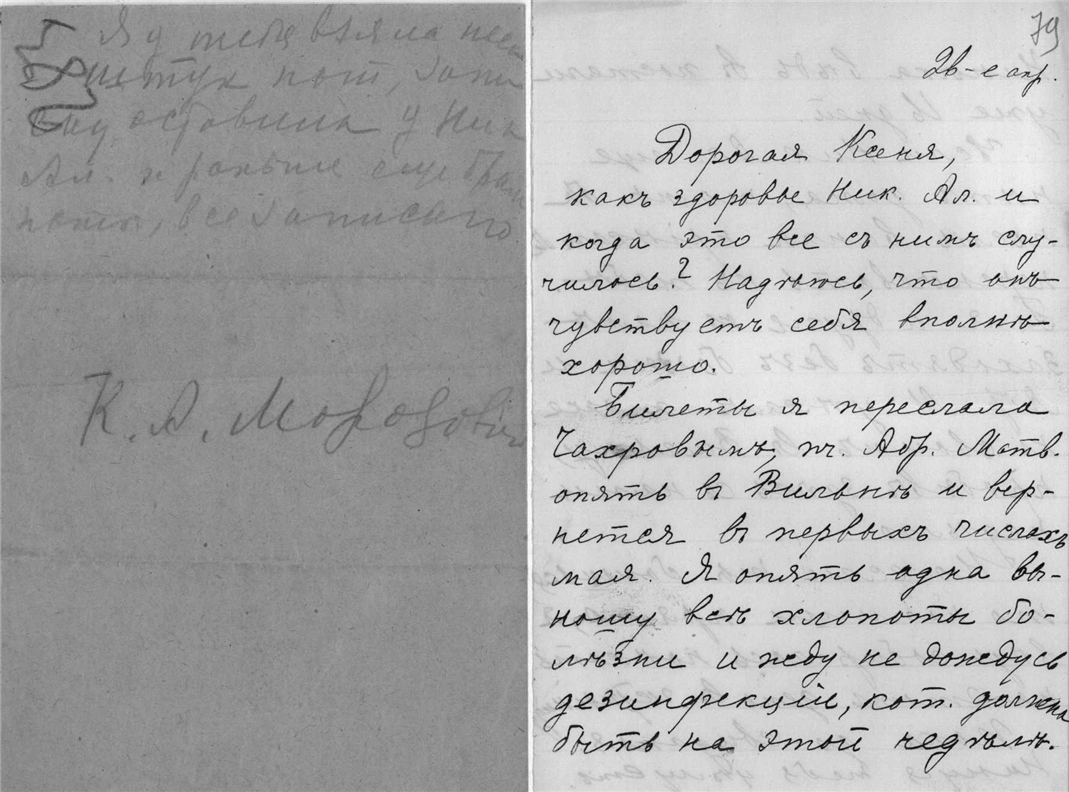 Я у тебя взяла
штук нот, запи
оставила у Ник
Ал. и раньше еще брала
ноты, все записано
К. А. Морозович
79
28-е апр.
Дорогая Ксеня,
какъ здоровье Ник. Ал. и
когда это все съ нимъ слу-
чилось? Надѣюсь, что онъ
чувствуетъ себя вполнѣ
хорошо.
Билеты я переслала
Чахровымъ, т. Абр. Матв.
опять въ Вильнѣ и вер-
нется въ первыхъ числахъ
мая. Я опять одна вы-
ношу всѣ хлопоты бо-
лѣзни и жду не дождусь
дезинфекціи, кот. должна
быть на этой недѣлѣ.